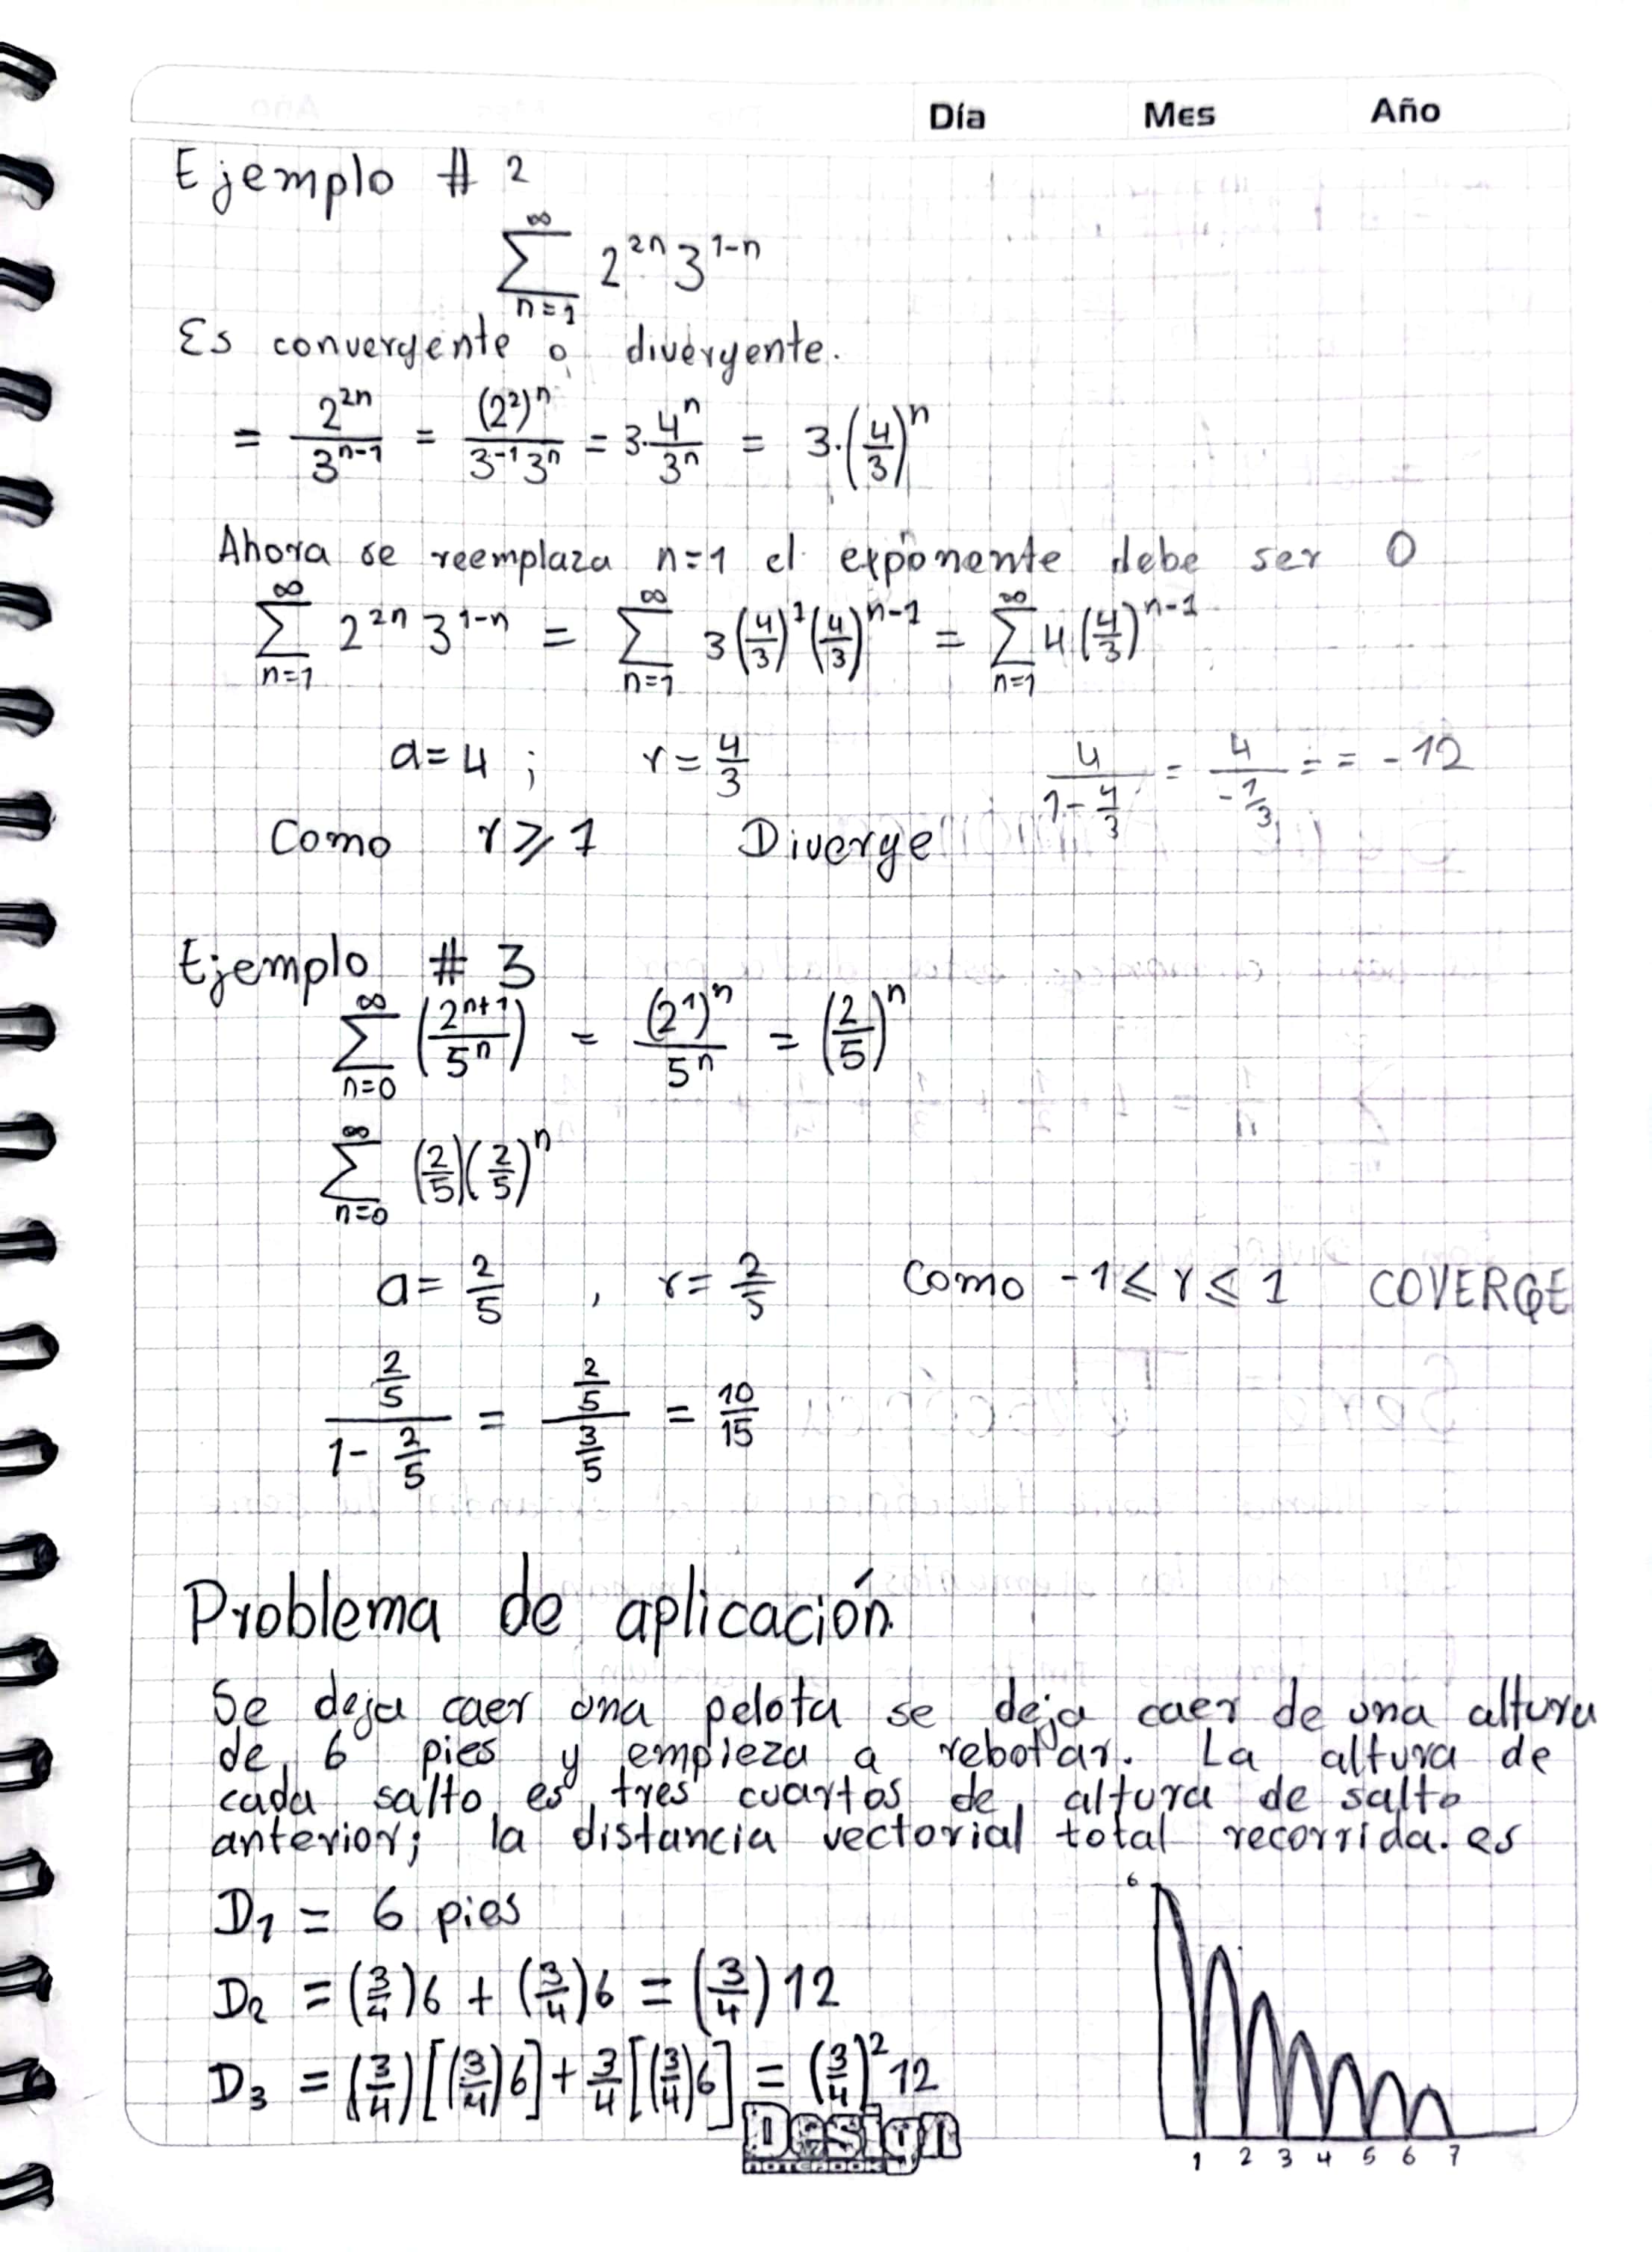 Día Mes Año
Ejemplo # 2
∑_{n=1}^{∞} 2^{2n} 3^{1-n}
Es convergente o divergente.
= 2^{2n}/3^{n-1} = (2^2)^n/(3^{-1} 3^n) = 3·4^n/3^n = 3·(4/3)^n
Ahora se reemplaza n=1 el exponente debe ser 0
∑_{n=1}^{∞} 2^{2n} 3^{1-n} = ∑_{n=1}^{∞} 3(4/3)^1(4/3)^{n-1} = ∑_{n=1}^{∞} 4(4/3)^{n-1}
a=4 ; r=4/3 4/(1-4/3) = 4/(-1/3) = = -12
Como r⩾1 Diverge
Ejemplo # 3
∑_{n=0}^{∞} (2^{n+1}/5^n) = (2^1)^n/5^n = (2/5)^n
∑_{n=0}^{∞} (2/5)(2/5)^n
a=2/5 , r=2/5 Como -1⩽r⩽1 COVERGE
(2/5)/(1-2/5) = (2/5)/(3/5) = 10/15
Problema de aplicación.
Se deja caer una pelota se deja caer de una altura
de 6 pies y empieza a rebotar. La altura de
cada salto es tres cuartos de altura de salto
anterior; la distancia vectorial total recorrida. es
D1 = 6 pies
D2 = (3/4)6 + (3/4)6 = (3/4)12
D3 = (3/4)[(3/4)6] + 3/4[(3/4)6] = (3/4)^2 12
6
1 2 3 4 5 6 7
Design
NOTEBOOK